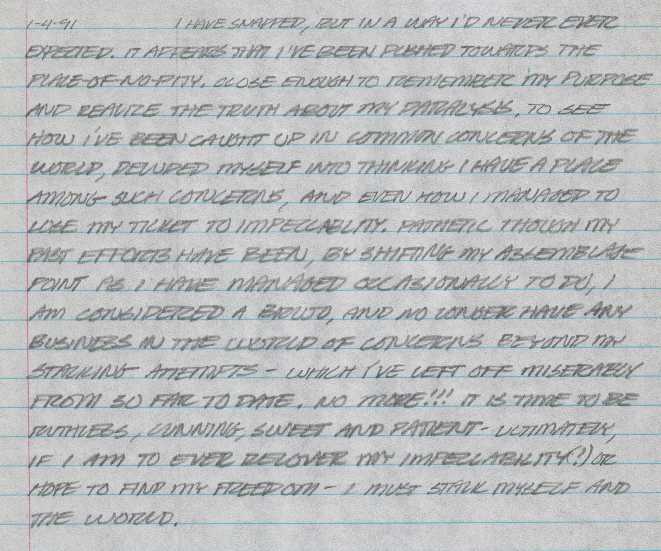 1-4-91 I HAVE SNAPPED, BUT IN A WAY I'D NEVER EVER
EXPECTED. IT APPEARS THAT I'VE BEEN PUSHED TOWARDS THE
PLACE-OF-NO-PITY. CLOSE ENOUGH TO REMEMBER MY PURPOSE
AND REALIZE THE TRUTH ABOUT MY PARALYSIS. TO SEE
HOW I'VE BEEN CAUGHT UP IN COMMON CONCERNS OF THE
WORLD, DELUDED MYSELF INTO THINKING I HAVE A PLACE
AMONG SUCH CONCERNS, AND EVEN HOW I MANAGED TO
LOSE MY TICKET TO IMPECCABILITY. PATHETIC THOUGH MY
PAST EFFORTS HAVE BEEN, BY SHIFTING MY ASSEMBLAGE
POINT AS I HAVE MANAGED OCCASIONALLY TO DO, I
AM CONSIDERED A BRUJO, AND NO LONGER HAVE ANY
BUSINESS IN THE WORLD OF CONCERNS BEYOND MY
STALKING ATTEMPTS - WHICH I'VE LEFT OFF MISERABLY
FROM SO FAR TO DATE. NO MORE!!! IT IS TIME TO BE
RUTHLESS, CUNNING, SWEET AND PATIENT - ULTIMATELY,
IF I AM TO EVER RECOVER MY IMPECCABILITY(!) OR
HOPE TO FIND MY FREEDOM - I MUST STALK MYSELF AND
THE WORLD.